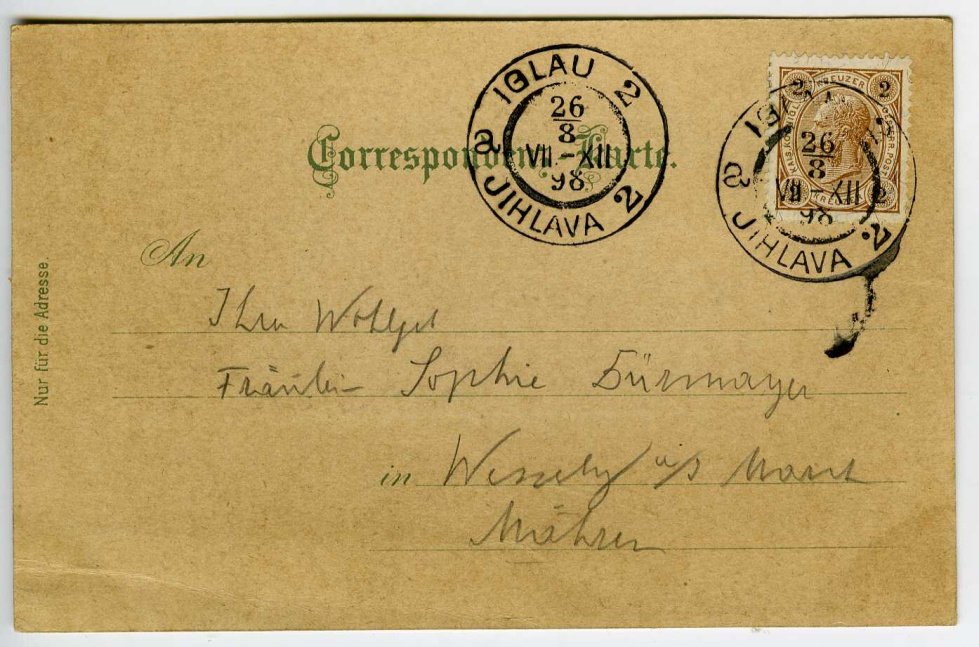 IGLAU 2
26
8
VII.-XII
98
a JIHLAVA 2
2 KREUZER 2
KAIS. KÖNIGL. OESTERR. POST
2 KREUZER 2
26
8
VII-XII
98
a JIHLAVA 2
Correspondenz-Karte.
An
Nur für die Adresse.
Ihre Wohlgeb
Fräulein Sophie
in Wessely a/d March
Mähren